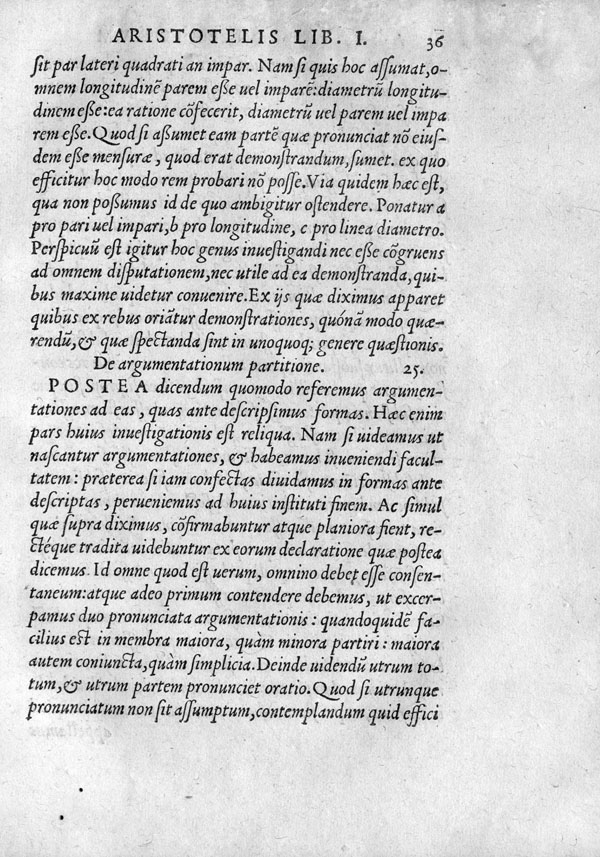 ARISTOTELIS LIB. I. 36
sit par lateri quadrati an impar. Nam si quis hoc assumat, o-
mnem longitudinẽ parem eße uel imparẽ: diametrũ longitu-
dinem eße: ea ratione cõfecerit, diametrũ uel parem uel impa
rem eße. Quod si aßumet eam partẽ quæ pronunciat nõ eius-
dem eße mensuræ, quod erat demonstrandum, sumet. ex quo
efficitur hoc modo rem probari nõ posse. Via quidem hæc est,
qua non poßumus id de quo ambigitur ostendere. Ponatur a
pro pari uel impari, b pro longitudine, c pro linea diametro.
Perspicuũ est igitur hoc genus inuestigandi nec eße cõgruens
ad omnem disputationem, nec utile ad ea demonstranda, qui-
bus maxime uidetur conuenire. Ex ijs quæ diximus apparet
quibus ex rebus oriãtur demonstrationes, quónã modo quæ-
rendũ, & quæ spectanda sint in unoquoq; genere quæstionis.
De argumentationum partitione. 25.
POSTEA dicendum quomodo referemus argumen-
tationes ad eas, quas ante descripsimus formas. Hæc enim
pars huius inuestigationis est reliqua. Nam si uideamus ut
nascantur argumentationes, & habeamus inueniendi facul-
tatem: præterea si iam confectas diuidamus in formas ante
descriptas, perueniemus ad huius instituti finem. Ac simul
quæ supra diximus, cõfirmabuntur atque planiora fient, re-
ctéque tradita uidebuntur ex eorum declaratione quæ postea
dicemus. Id omne quod est uerum, omnino debet esse consen-
taneum: atque adeo primum contendere debemus, ut excer-
pamus duo pronunciata argumentationis: quandoquidẽ fa-
cilius est in membra maiora, quàm minora partiri: maiora
autem coniuncta, quàm simplicia. Deinde uidendũ utrum to-
tum, & utrum partem pronunciet oratio. Quod si utrunque
pronunciatum non sit assumptum, contemplandum quid effici